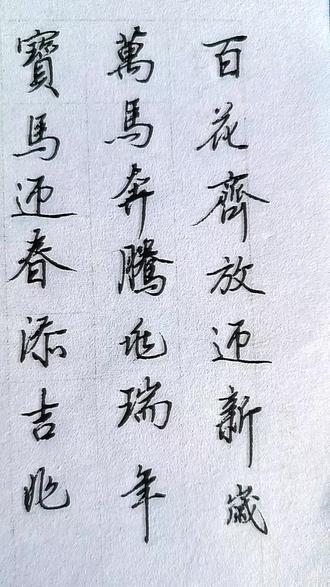 百花齊放迎新歲
萬馬奔騰兆瑞年
寶馬迎春添吉兆